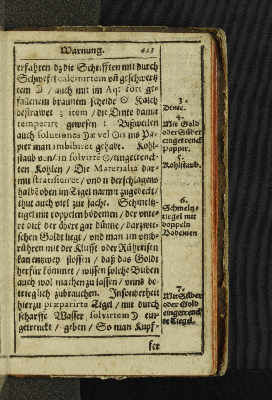 Warnung. 423
erfahren dz die Schrifften mit durch
Schwefel calcinirtem vñ geschwertz
tem ☽ / auch mit im Aq: fort ge-
fallenem braunem scheide ☉ Kalch
bestrawet ; item / die Dinte damit
temperirt gewesen : Bißweilen
auch solutiones ☽æ vel ☉is ins Pa-
pier man imbibiret gehabt. Kohl-
staub von / in solvirte ☉ / eingetrenck-
ten Kohlen / Die Materialia dar-
mit stratificiret / vnd in der schlagens
halbe oben im Tigel narmit zugedeckt /
thut auch viel zur sache. Schmeltz-
tigel mit doppelen bödemen / der vnte-
re dick der öbere gar dünne / darzwi-
schen Goldt ligt / vnd man im vmb-
rühren mit der Klufft oder Rühreisen
kan entzwey stossen / daß das Goldt
herfür kömmet / wissen solche Buben
auch wol machen zu lassen / vnnd be-
trieglich zubrauchen. Insonderheit
hierzu præparirte Tigel / mit durch
scharffe Wasser solvirtem ☽ eur-
getrenckt / geben / So man Kupf-
fer
3.
Dinte.
4.
Mit Gold
oder Silber
eingetrenckt
pappir.
5.
Kohlstaub.
6.
Schmeltz-
tiegel mit
doppeln
Bödemen
7.
Mit Silber
oder Gold
eingetrenck
te Tiegel.